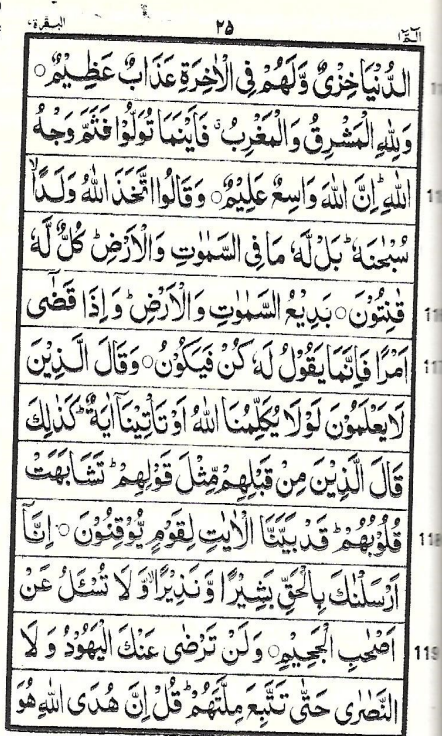 البقرة ٢٥ الٓمّٓ ١
الدُّنْيَا خِزْىٌ وَّلَهُمْ فِى الْاٰخِرَةِ عَذَابٌ عَظِيْمٌ ○
وَلِلّٰهِ الْمَشْرِقُ وَالْمَغْرِبُ ۗ فَاَيْنَمَا تُوَلُّوْا فَثَمَّ وَجْهُ
اللّٰهِ ؕ اِنَّ اللّٰهَ وَاسِعٌ عَلِيْمٌ ○ وَقَالُوا اتَّخَذَ اللّٰهُ وَلَدًا ۙ
سُبْحٰنَهٗ ؕ بَلْ لَّهٗ مَا فِى السَّمٰوٰتِ وَالْاَرْضِ ؕ كُلٌّ لَّهٗ
قٰنِتُوْنَ ○ بَدِيْعُ السَّمٰوٰتِ وَالْاَرْضِ ؕ وَاِذَا قَضٰٓى
اَمْرًا فَاِنَّمَا يَقُوْلُ لَهٗ كُنْ فَيَكُوْنُ ○ وَقَالَ الَّذِيْنَ
لَا يَعْلَمُوْنَ لَوْلَا يُكَلِّمُنَا اللّٰهُ اَوْ تَاْتِيْنَاۤ اٰيَةٌ ؕ كَذٰلِكَ
قَالَ الَّذِيْنَ مِنْ قَبْلِهِمْ مِّثْلَ قَوْلِهِمْ ؕ تَشَابَهَتْ
قُلُوْبُهُمْ ؕ قَدْ بَيَّنَّا الْاٰيٰتِ لِقَوْمٍ يُّوْقِنُوْنَ ○ اِنَّاۤ
118
اَرْسَلْنٰكَ بِالْحَقِّ بَشِيْرًا وَّنَذِيْرًا ۙ وَّلَا تُسْـَٔلُ عَنْ
اَصْحٰبِ الْجَحِيْمِ ○ وَلَنْ تَرْضٰى عَنْكَ الْيَهُوْدُ وَلَا
119
النَّصٰرٰى حَتّٰى تَتَّبِعَ مِلَّتَهُمْ ؕ قُلْ اِنَّ هُدَى اللّٰهِ هُوَ